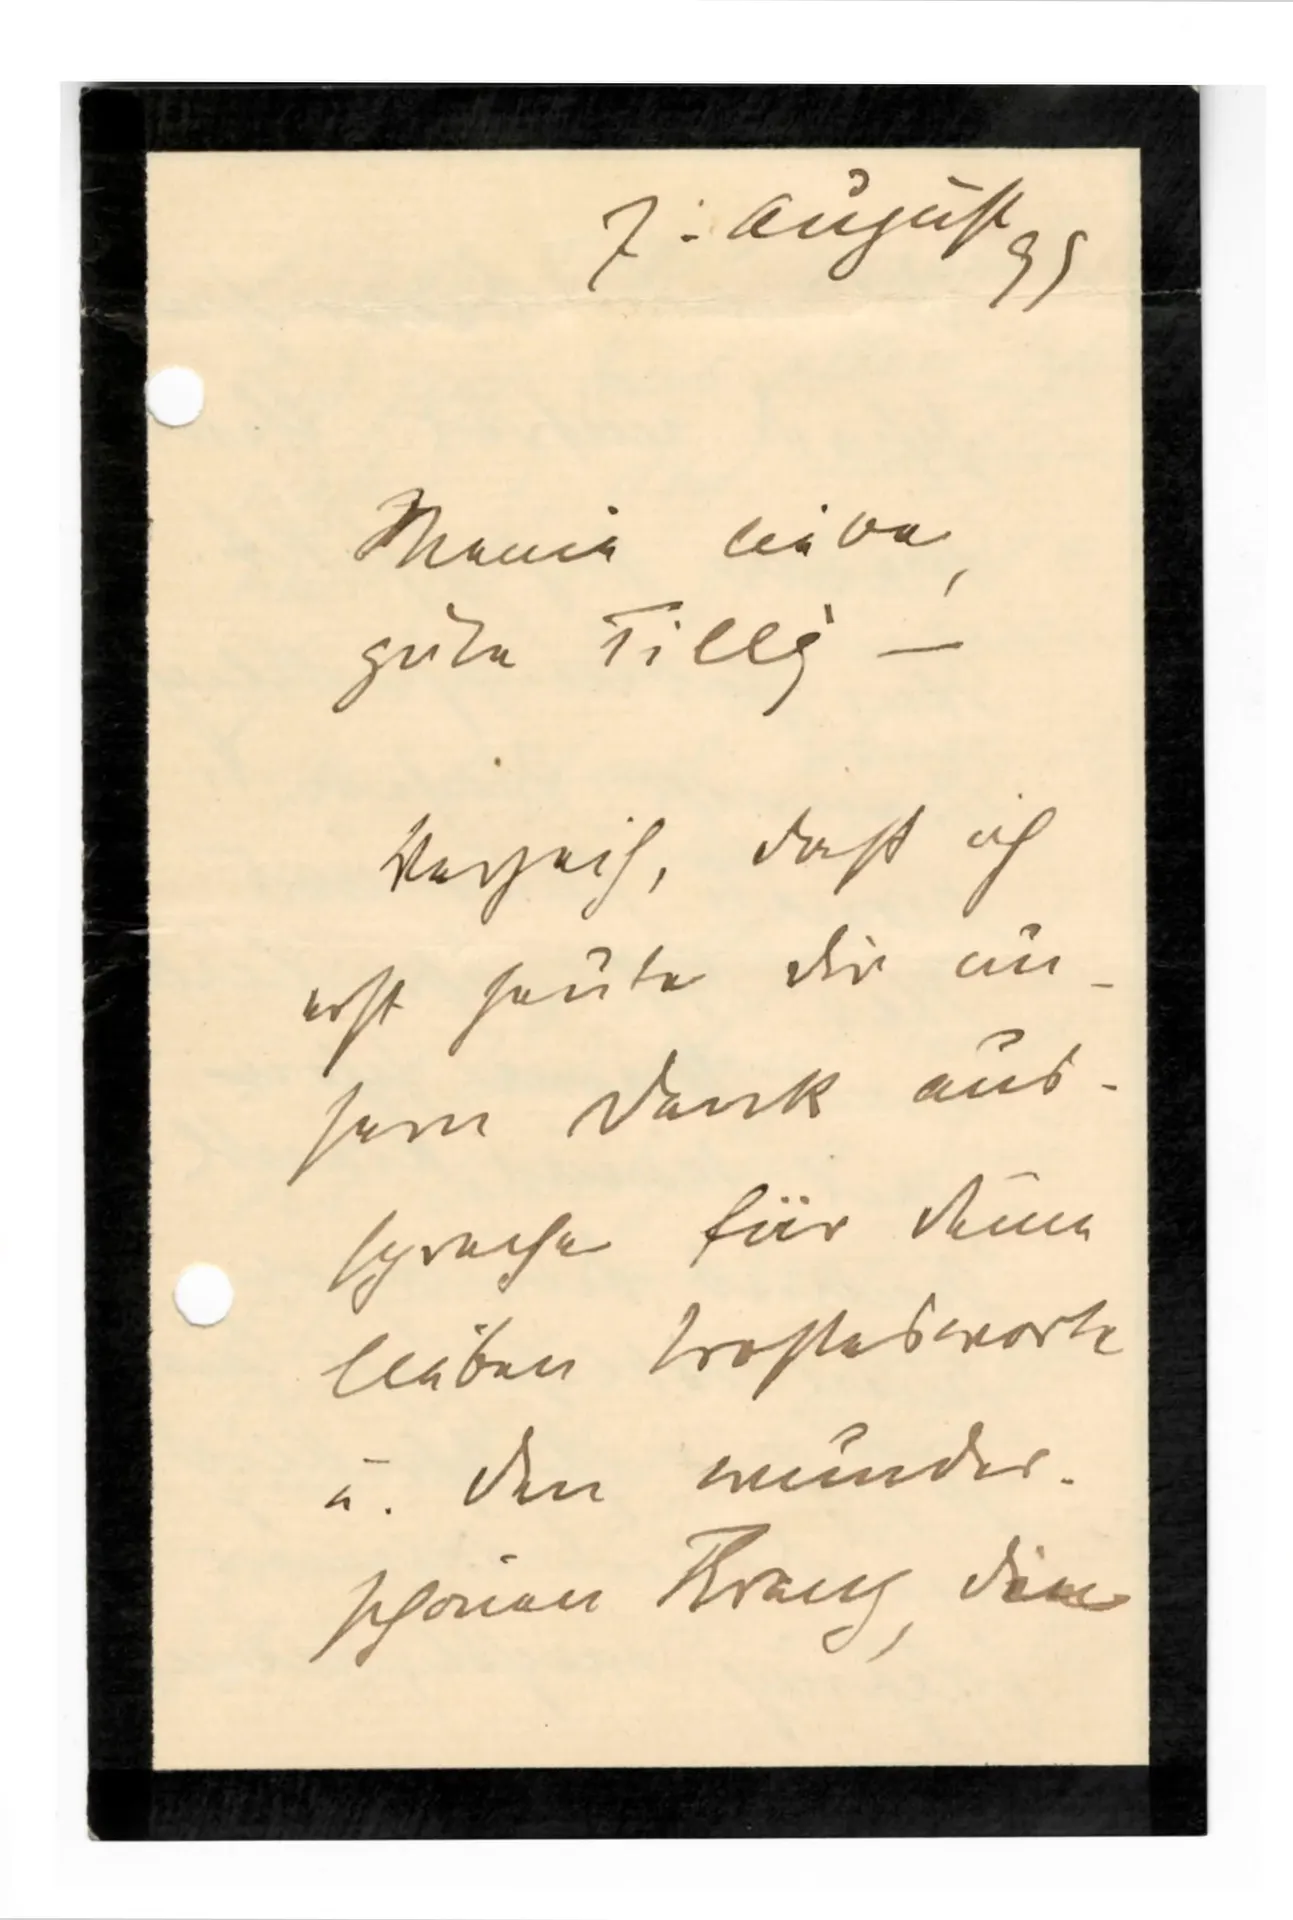 7. August 95
Meine liebe,
gute Tilly —
Verzeih, daß ich
erst heute dir un-
sern Dank aus-
spreche für deine
lieben Trostesworte
u. den wunder-
schönen Kranz, den